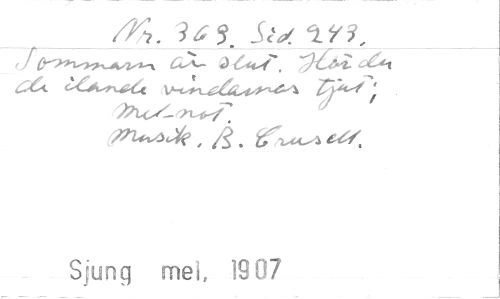 Nr. 369. Sid. 243.
Sommarn är slut. Hör du
de ilande vindarnas tjut;
Mel-not.
Musik. B. Crusell.
Sjung mel, 1907